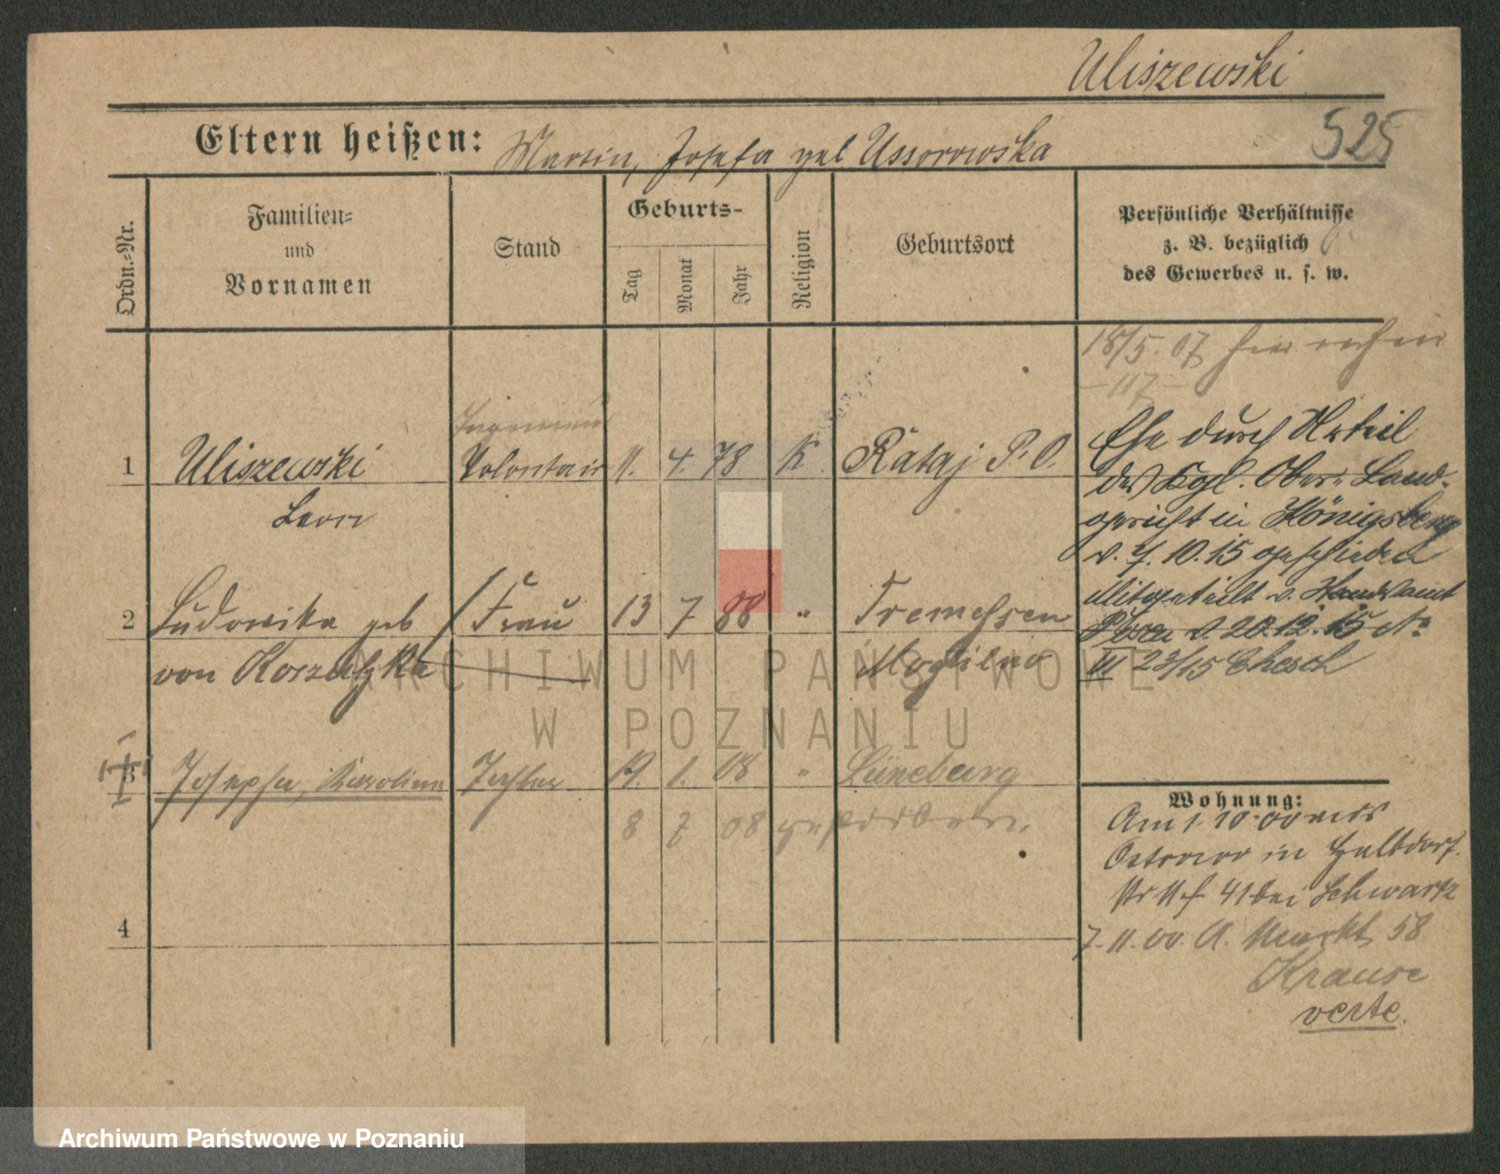 Uliszewski
525
Eltern heißen: Martin, Josefa geb Ussorowska
Ordn.-Nr.
Familien-
und
Vornamen
Stand
Geburts-
Tag
Monat
Jahr
Religion
Geburtsort
Persönliche Verhältnisse
z. B. bezüglich
des Gewerbes u. s. w.
18/5. 07 hier
1 Uliszewski Volontair 11. 4. 78 K Rataj P. O.
Leon
Ehe durch Urteil
des Kgl. Ober- Land-
gericht in Königsberg
v. 7. 10. 15 geschieden
Mitgeteilt v. Standesamt
Posen v. 20.12.15
III 23/15 Ehesch
2 Ludowika geb Frau 13 7 88 " Tremessen
von Korzutzka Mogilno
3 Josepha, Karolina Tochter 19. 1. 08 " Lüneburg
8 7 08 gestorben.
4
Wohnung:
Am 1. 10. 00 nach
Ostrowo in Halbdorf
str 41 bei Schwartz
7. 11. 00. A. Markt 58
Krause
verte.
ARCHIWUM PAŃSTWOWE
W POZNANIU
Archiwum Państwowe w Poznaniu